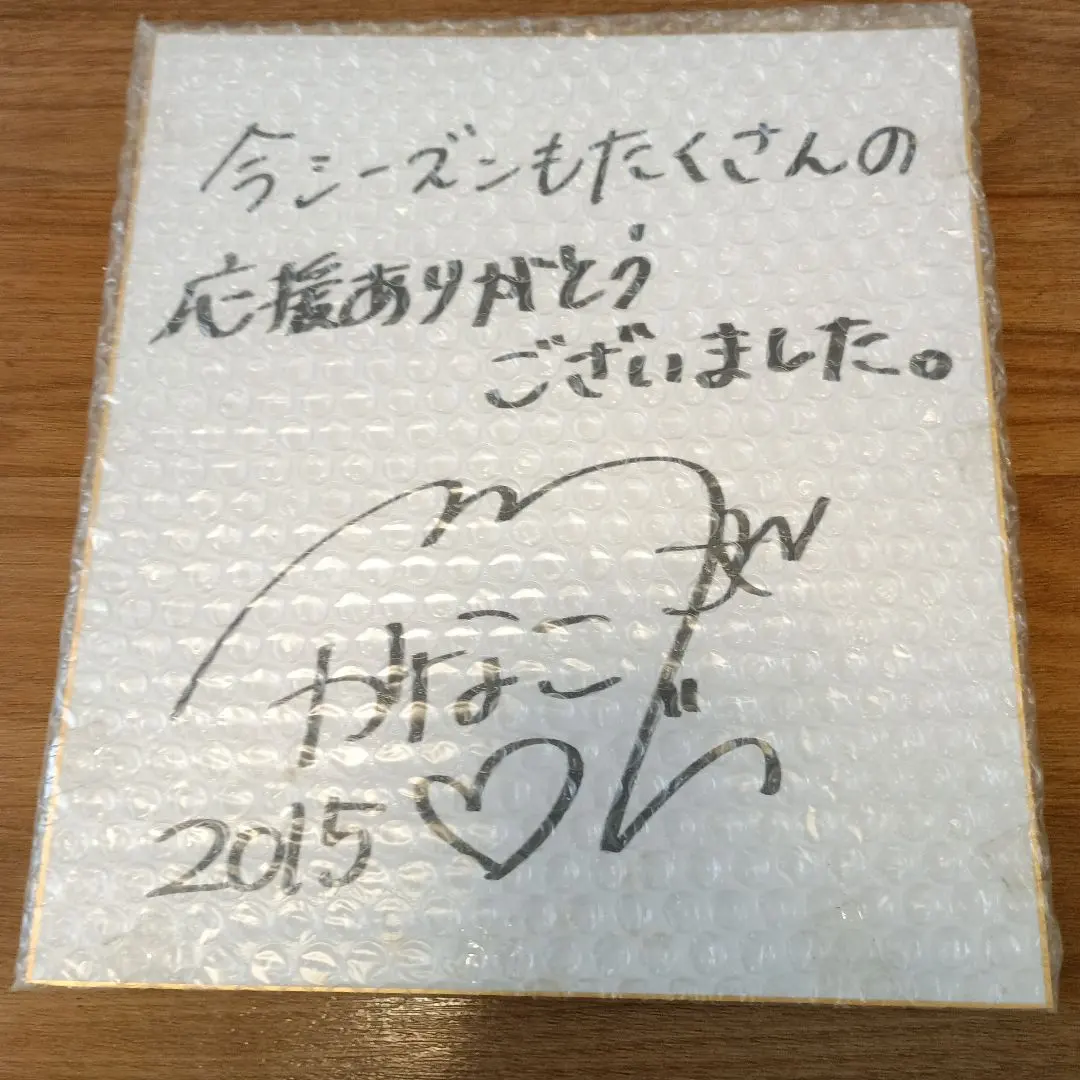 今シーズンもたくさんの
応援ありがとう
ございました。
かなこ
2015